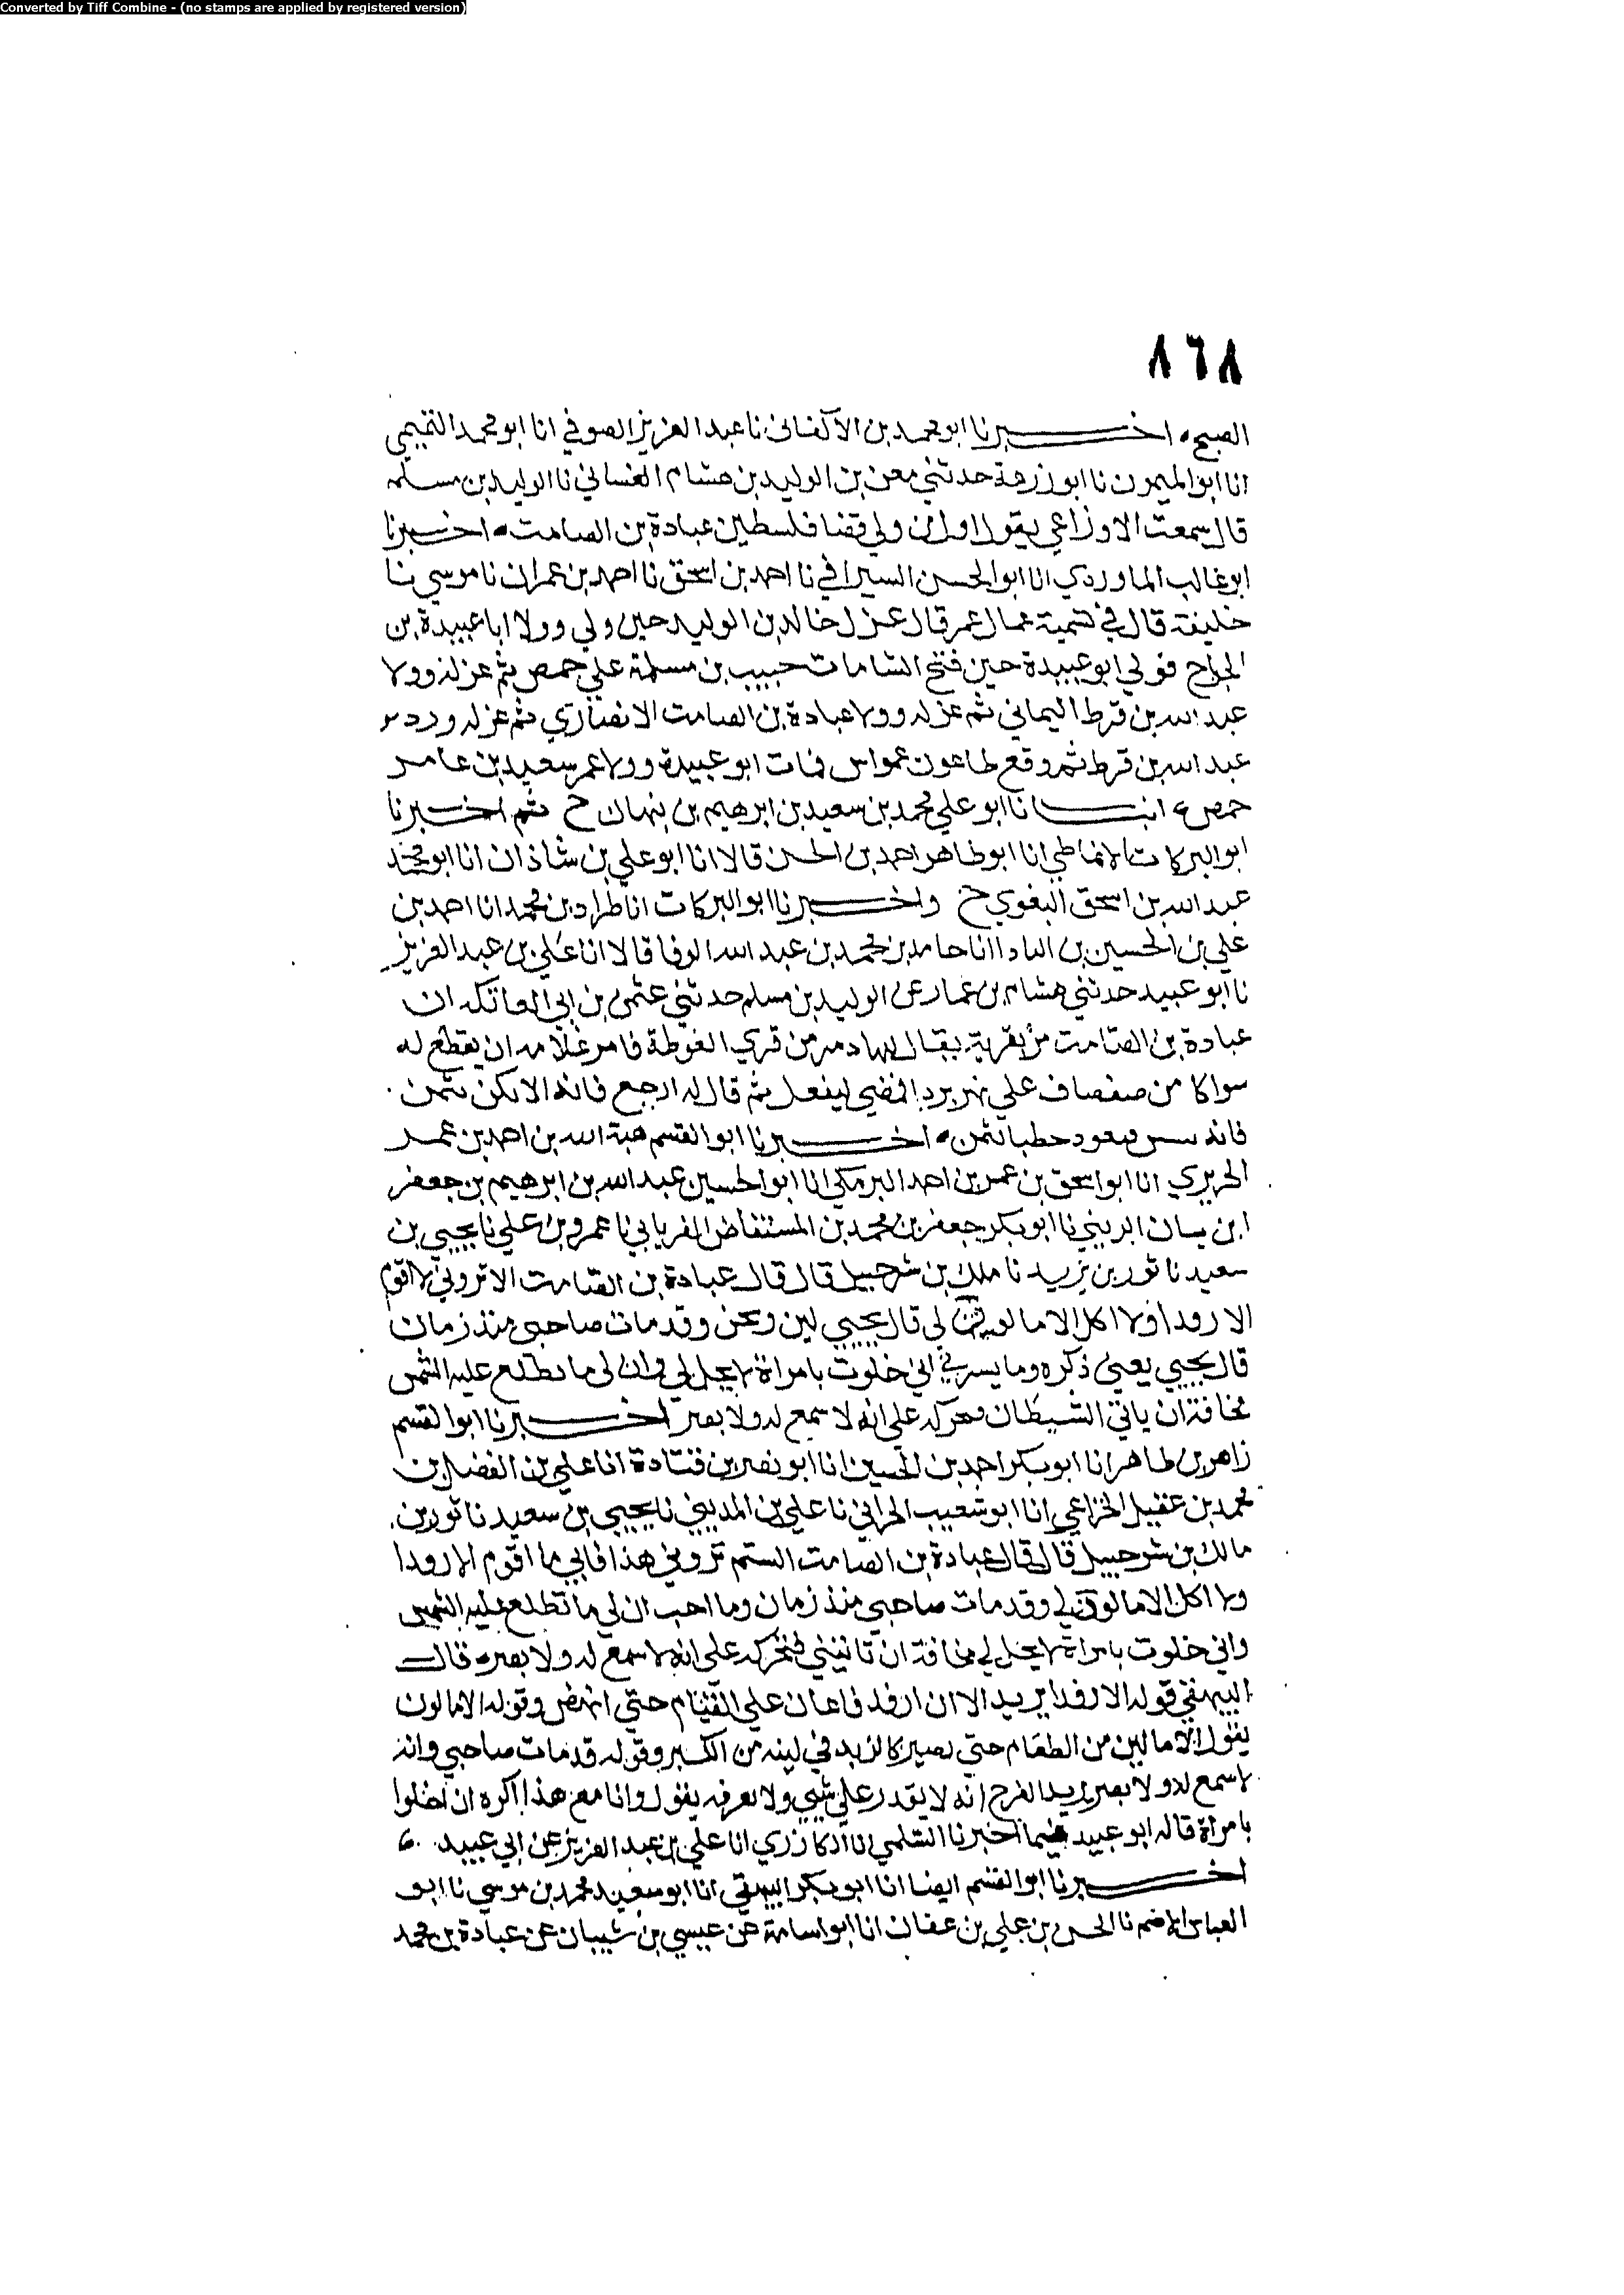 Converted by Tiff Combine - (no stamps are applied by registered version)
٨٦٨
الصبح اخـــبرنا ابو محمد بن الاكفانى نا عبد العزيز الصوفي انا ابو محمد التميمي
انا ابو الميمون نا ابو زرعة حدثني معن بن الوليد بن هشام الغساني نا الوليد بن مسلم
قال سمعت الاوزاعي يقول اول من ولي قضا فلسطين عبادة بن الصامت اخـــبرنا
ابو غالب الماوردي انا ابو الحسن السيرافي نا احمد بن اسحق نا احمد بن عمران نا موسي نا
خليفة قال في تسمية عمال عمر قال عزل خالد بن الوليد حين ولي وولا ابا عبيدة بن
الجراح فولي ابو عبيدة حين فتح الشامات حبيب بن مسلمة علي حمص ثم عزله وولا
عبد الله بن قرط اليماني ثم عزله وولا عبادة بن الصامت الانصاري ثم عزله ورد
عبد الله بن قرط ثم وقع طاعون عمواس فمات ابو عبيدة وولا عمر سعيد بن عامر
حمص انبـــانا ابو علي محمد بن سعيد بن ابرهيم بن نبهان ح ثم اخـــبرنا
ابو البركات الانماطي انا ابو طاهر احمد بن الحسن قالا انا ابو علي بن شاذان انا ابو محمد
عبد الله بن اسحق البغوي ح واخـــبرنا ابو البركات انا طراد بن محمد انا احمد بن
علي بن الحسين بن البادا انا حامد بن محمد بن عبد الله الوفا قالا انا علي بن عبد العزيز
نا ابو عبيد حدثني هشام بن عمار عن الوليد بن مسلم حدثني عثمن بن ابي العاتكه ان
عبادة بن الصامت مر بقرية يقال لها دمر من قري الغوطة فامر غلامه ان يقطع له
سواكا من صفصاف علي نهر بردا فمضي ليفعل ثم قال له ارجع فانه الا يكن بثمن
فانه سيعود حطبا بثمن اخـــبرنا ابو القسم هبة الله بن احمد بن عمر
الحريري انا ابو اسحق بن عمر بن احمد البرمكي انا ابو الحسين عبد الله بن ابرهيم بن جعفر
ابن بيان الزبيبي نا ابو بكر جعفر بن محمد بن المستفاض الفريابي نا عمرو بن علي نا يحيي بن
سعيد نا ثور بن يزيد نا ملك بن شرحبيل قال قال عبادة بن الصامت الا تروني لا اقوم
الا رفدا ولا اكل الا ما لوق لي قال يحيي لين وسخن وقد مات صاحبي منذ زمان
قال يحيي يعني ذكره وما يسرني اني خلوت بامراة لا يحل لي وان لي ما تطلع عليه الشمس
مخافة ان ياتي الشيطان فيحركه علي انه لا سمع له ولا بصر اخـــبرنا ابو القسم
زاهر بن طاهر انا ابو بكر احمد بن الحسين انا ابو نصر بن قتادة انا علي بن الفضل بن
محمد بن عقيل الخزاعي انا ابو شعيب الحراني نا علي بن المديني نا يحيي بن سعيد نا ثور بن
مالك بن شرحبيل قال قال عبادة بن الصامت الستم تروني هذا فاني ما اقوم الا رفدا
ولا اكل الا ما لوق لي وقد مات صاحبي منذ زمان وما احب ان لي ما تطلع عليه الشمس
واني خلوت بامراة لا يحل لي مخافة ان تاتيني فتحركه علي انه لا سمع له ولا بصر قال
البيهقي قوله الا رفدا يريد الا ان ارفد فاعان علي القيام حتي انهض وقوله الا ما لوق
يقول الا ما لين من الطعام حتي يصير كالزبد في لينه من الكبر وقوله قد مات صاحبي وانه
لا سمع له ولا بصر يريد الفرج انه لا يقدر علي شيي ولا يعرفه يقول وانا مع هذا اكره ان اخلوا
بامراة قاله ابو عبيد فيما اخبرنا السلمي انا الكازري انا علي بن عبد العزيز عن ابي عبيد
اخـــبرنا ابو القسم ايضا انا ابو بكر البيهقي انا ابو سعيد محمد بن موسي نا ابو
العباس الاصم نا الحسن بن علي بن عفان انا ابو اسامة عن عيسي بن شيبان عن عبادة بن محمد